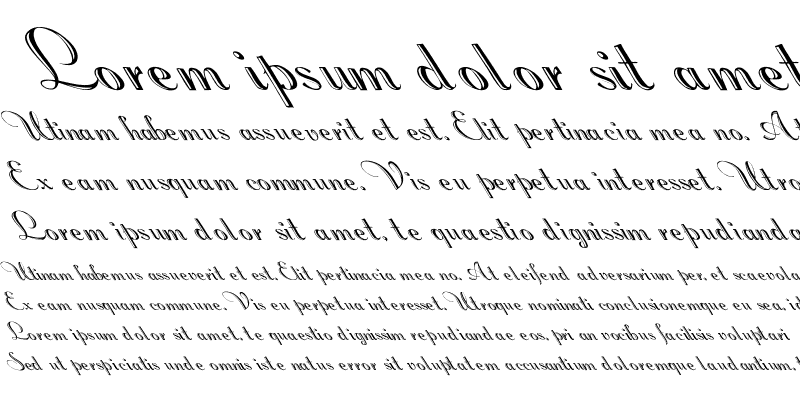 Lorem ipsum dolor sit amet
Utinam habemus assueverit et est. Elit pertinacia mea no. At
Ex eam nusquam commune. Vis eu perpetua interesset. Utro
Lorem ipsum dolor sit amet, te quaestio dignissim repudianda
Utinam habemus assueverit et est. Elit pertinacia mea no. At eleifend adversarium per, et scaevola
Ex eam nusquam commune. Vis eu perpetua interesset. Utroque nominati conclusionemque eu sea, id
Lorem ipsum dolor sit amet, te quaestio dignissim repudiandae eos, pri an vocibus facilisis voluptari
Sed ut perspiciatis unde omnis iste natus error sit voluptatem accusantium doloremque laudantium, t